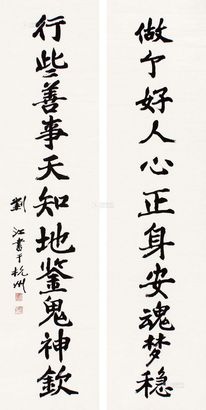 做个好人心正身安魂梦稳
行些善事天知地鉴鬼神钦
劉江書于杭州